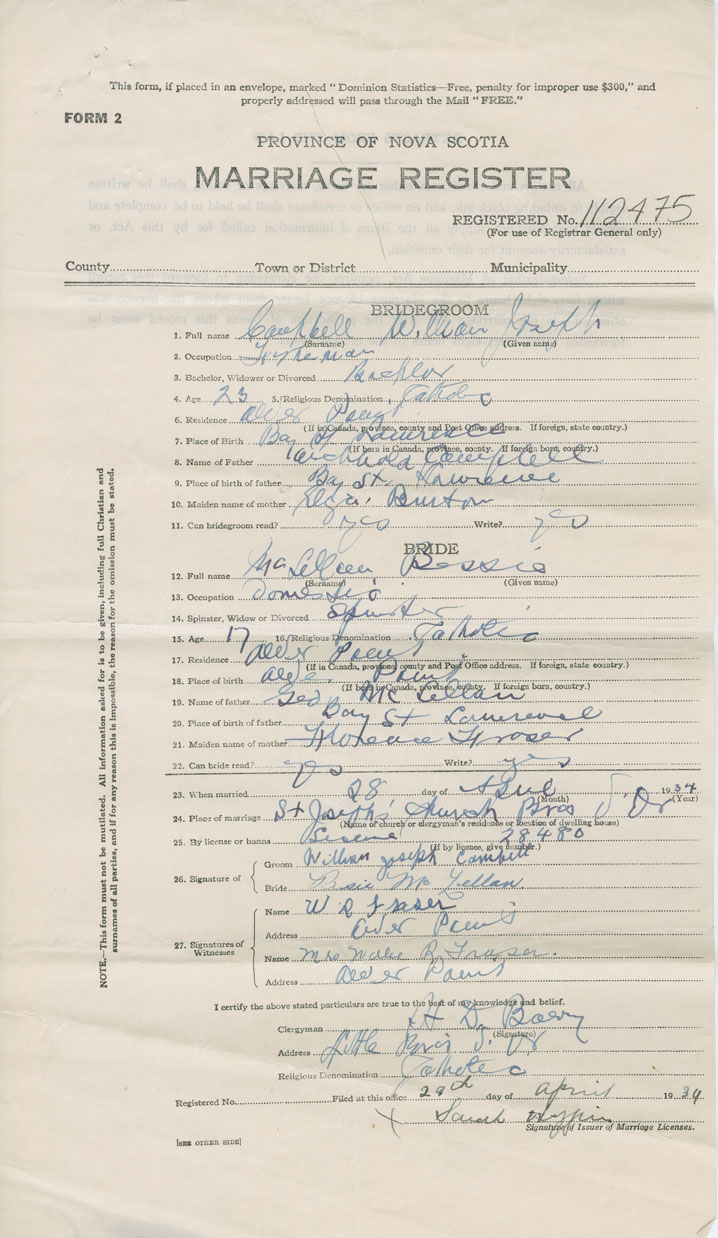 This form, if placed in an envelope, marked "Dominion Statistics—Free, penalty for improper use $300," and
properly addressed will pass through the Mail "FREE."
FORM 2
PROVINCE OF NOVA SCOTIA
MARRIAGE REGISTER
REGISTERED No. 112475
(For use of Registrar General only)
County Town or District Municipality
BRIDEGROOM
1. Full name Campbell William Joseph
(Surname) (Given name)
2. Occupation
3. Bachelor, Widower or Divorced
4. Age 23 5. Religious Denomination
6. Residence Alder Point
(If in Canada, province, county and Post Office address. If foreign, state country.)
7. Place of Birth Bay St Lawrence
(If born in Canada, province, county. If foreign born, country.)
8. Name of Father Campbell
9. Place of birth of father Bay St Lawrence
10. Maiden name of mother Burton
11. Can bridegroom read? yes Write? yes
BRIDE
12. Full name Bessie
(Surname) (Given name)
13. Occupation
14. Spinster, Widow or Divorced
15. Age 17 16. Religious Denomination
17. Residence Alder Point
(If in Canada, province, county and Post Office address. If foreign, state country.)
18. Place of birth Point
(If born in Canada, province, county. If foreign born, country.)
19. Name of father Geo McLellan
20. Place of birth of father Bay St Lawrence
21. Maiden name of mother Florence Fraser
22. Can bride read? yes Write? yes
23. When married 28 day of April 1934
(Month) (Year)
24. Place of marriage St Joseph's Church Bras D'Or
(Name of church or clergyman's residence or location of dwelling house)
25. By license or banns 28480
(If by licence, give number.)
26. Signature of
Groom William Joseph
Bride McLellan
27. Signatures of
Witnesses
Name W R Fraser
Address Alder Point
Name Mrs R. Fraser.
Address Alder Point
I certify the above stated particulars are true to the best of my knowledge and belief.
Clergyman
(Signature)
Address Little Bras D'Or
Religious Denomination
Registered No. Filed at this office 29th day of April 1934
X Sarah
Signature of Issuer of Marriage Licenses.
[SEE OTHER SIDE]
NOTE.—This form must not be mutilated. All information asked for is to be given, including full Christian and
surnames of all parties, and if for any reason this is impossible, the reason for the omission must be stated.